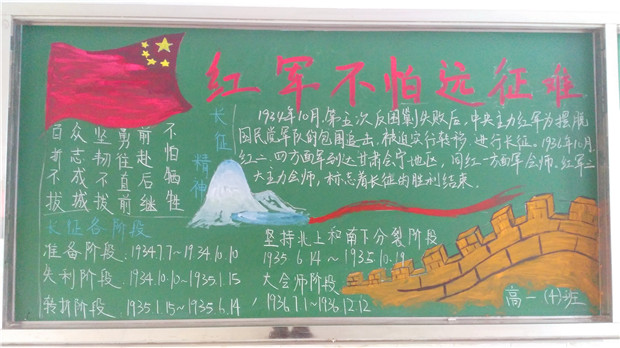 红军不怕远征难
百折不拔
众志成城
坚韧不拔
勇往直前
前赴后继
不怕牺牲
长征精神
1934年10月,第五次反围剿失败后,中央主力红军为摆脱
国民党军队的包围追击,被迫实行转移,进行长征。1936年10月
红二、四方面军到达甘肃会宁地区,同红一方面军会师。红军三
大主力会师,标志着长征的胜利结束。
长征各阶段
准备阶段:1934.7.7~1934.10.10
失利阶段:1934.10.10~1935.1.15
转折阶段:1935.1.15~1935.6.14
坚持北上和南下分裂阶段
1935.6.14~1935.10.19
大会师阶段
1936.7.1~1936.12.12
高一(4)班